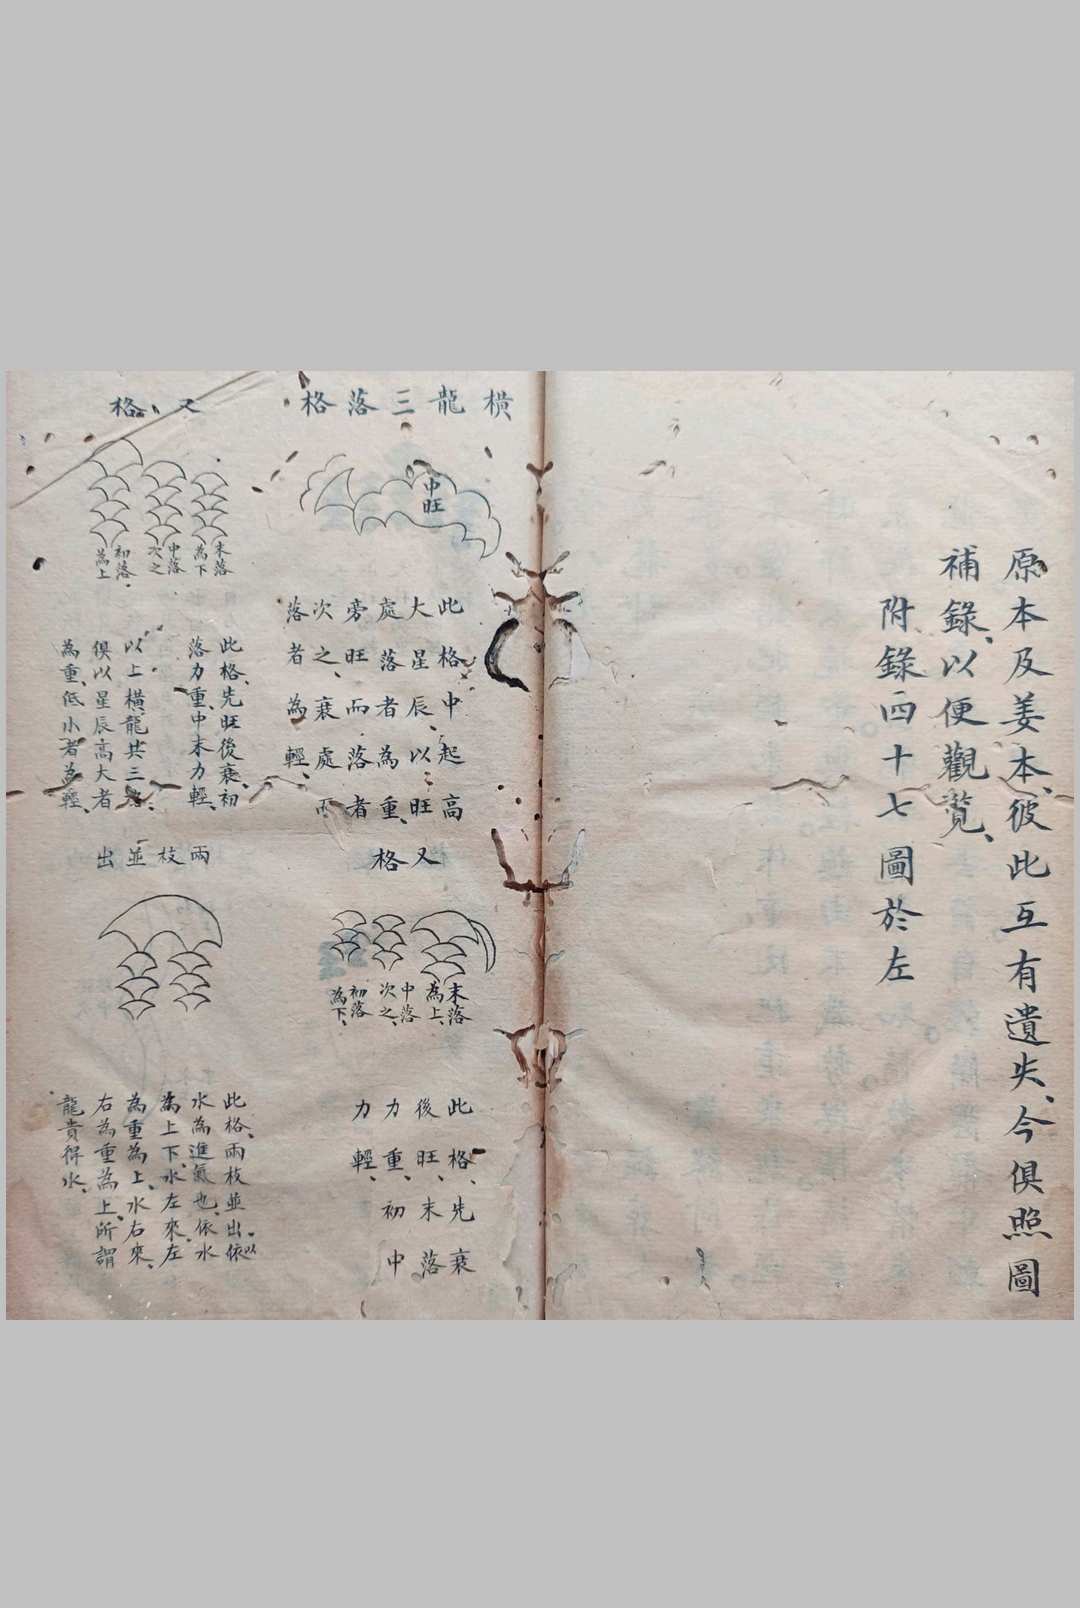 原本及姜本、彼此互有遺失、今俱照圖
補錄、以便觀覽、
附錄四十七圖於左
橫龍三落格
中旺
此格中起高
大星辰、以旺
處落者為重、
旁旺而落者
次之、衰處而
落者為輕、
又格
末落
為上、
中落
次之、
初落
為下、
此格、先衰
後旺、末落
力重、初中
力輕、
又格
末落
為下
中落
次之
初落
為上
此格、先旺後衰、初
落力重、中末力輕、
以上橫龍共三
俱以星辰高大者
為重、低小者為輕、
兩枝並出
此格、兩枝並出、以依
水為進氣也、依水
為上下、水左來、左
為重為上、水右來、
右為重為上、所謂
龍貴得水、